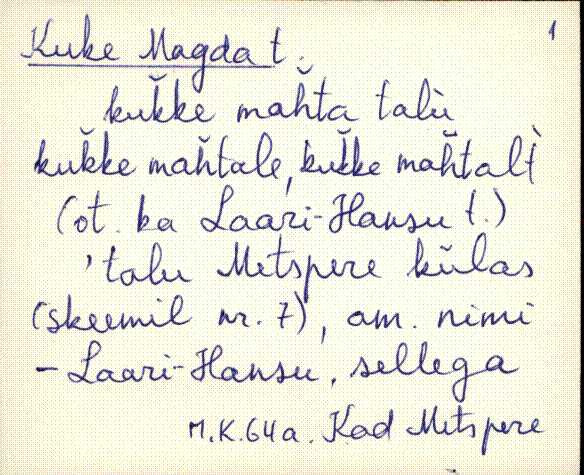 Kuke Magda t. 1
kuk̆ke mah̆ta talù
kuk̆ke mah̆tale, kuk̆ke mah̆talt̀
(ot. ka Laari-Hansu t.)
'talu Metspere külas
(skeemil nr. 7), am. nimi
– Laari-Hansu, sellega
M.K. 64 a. Kad Metspere